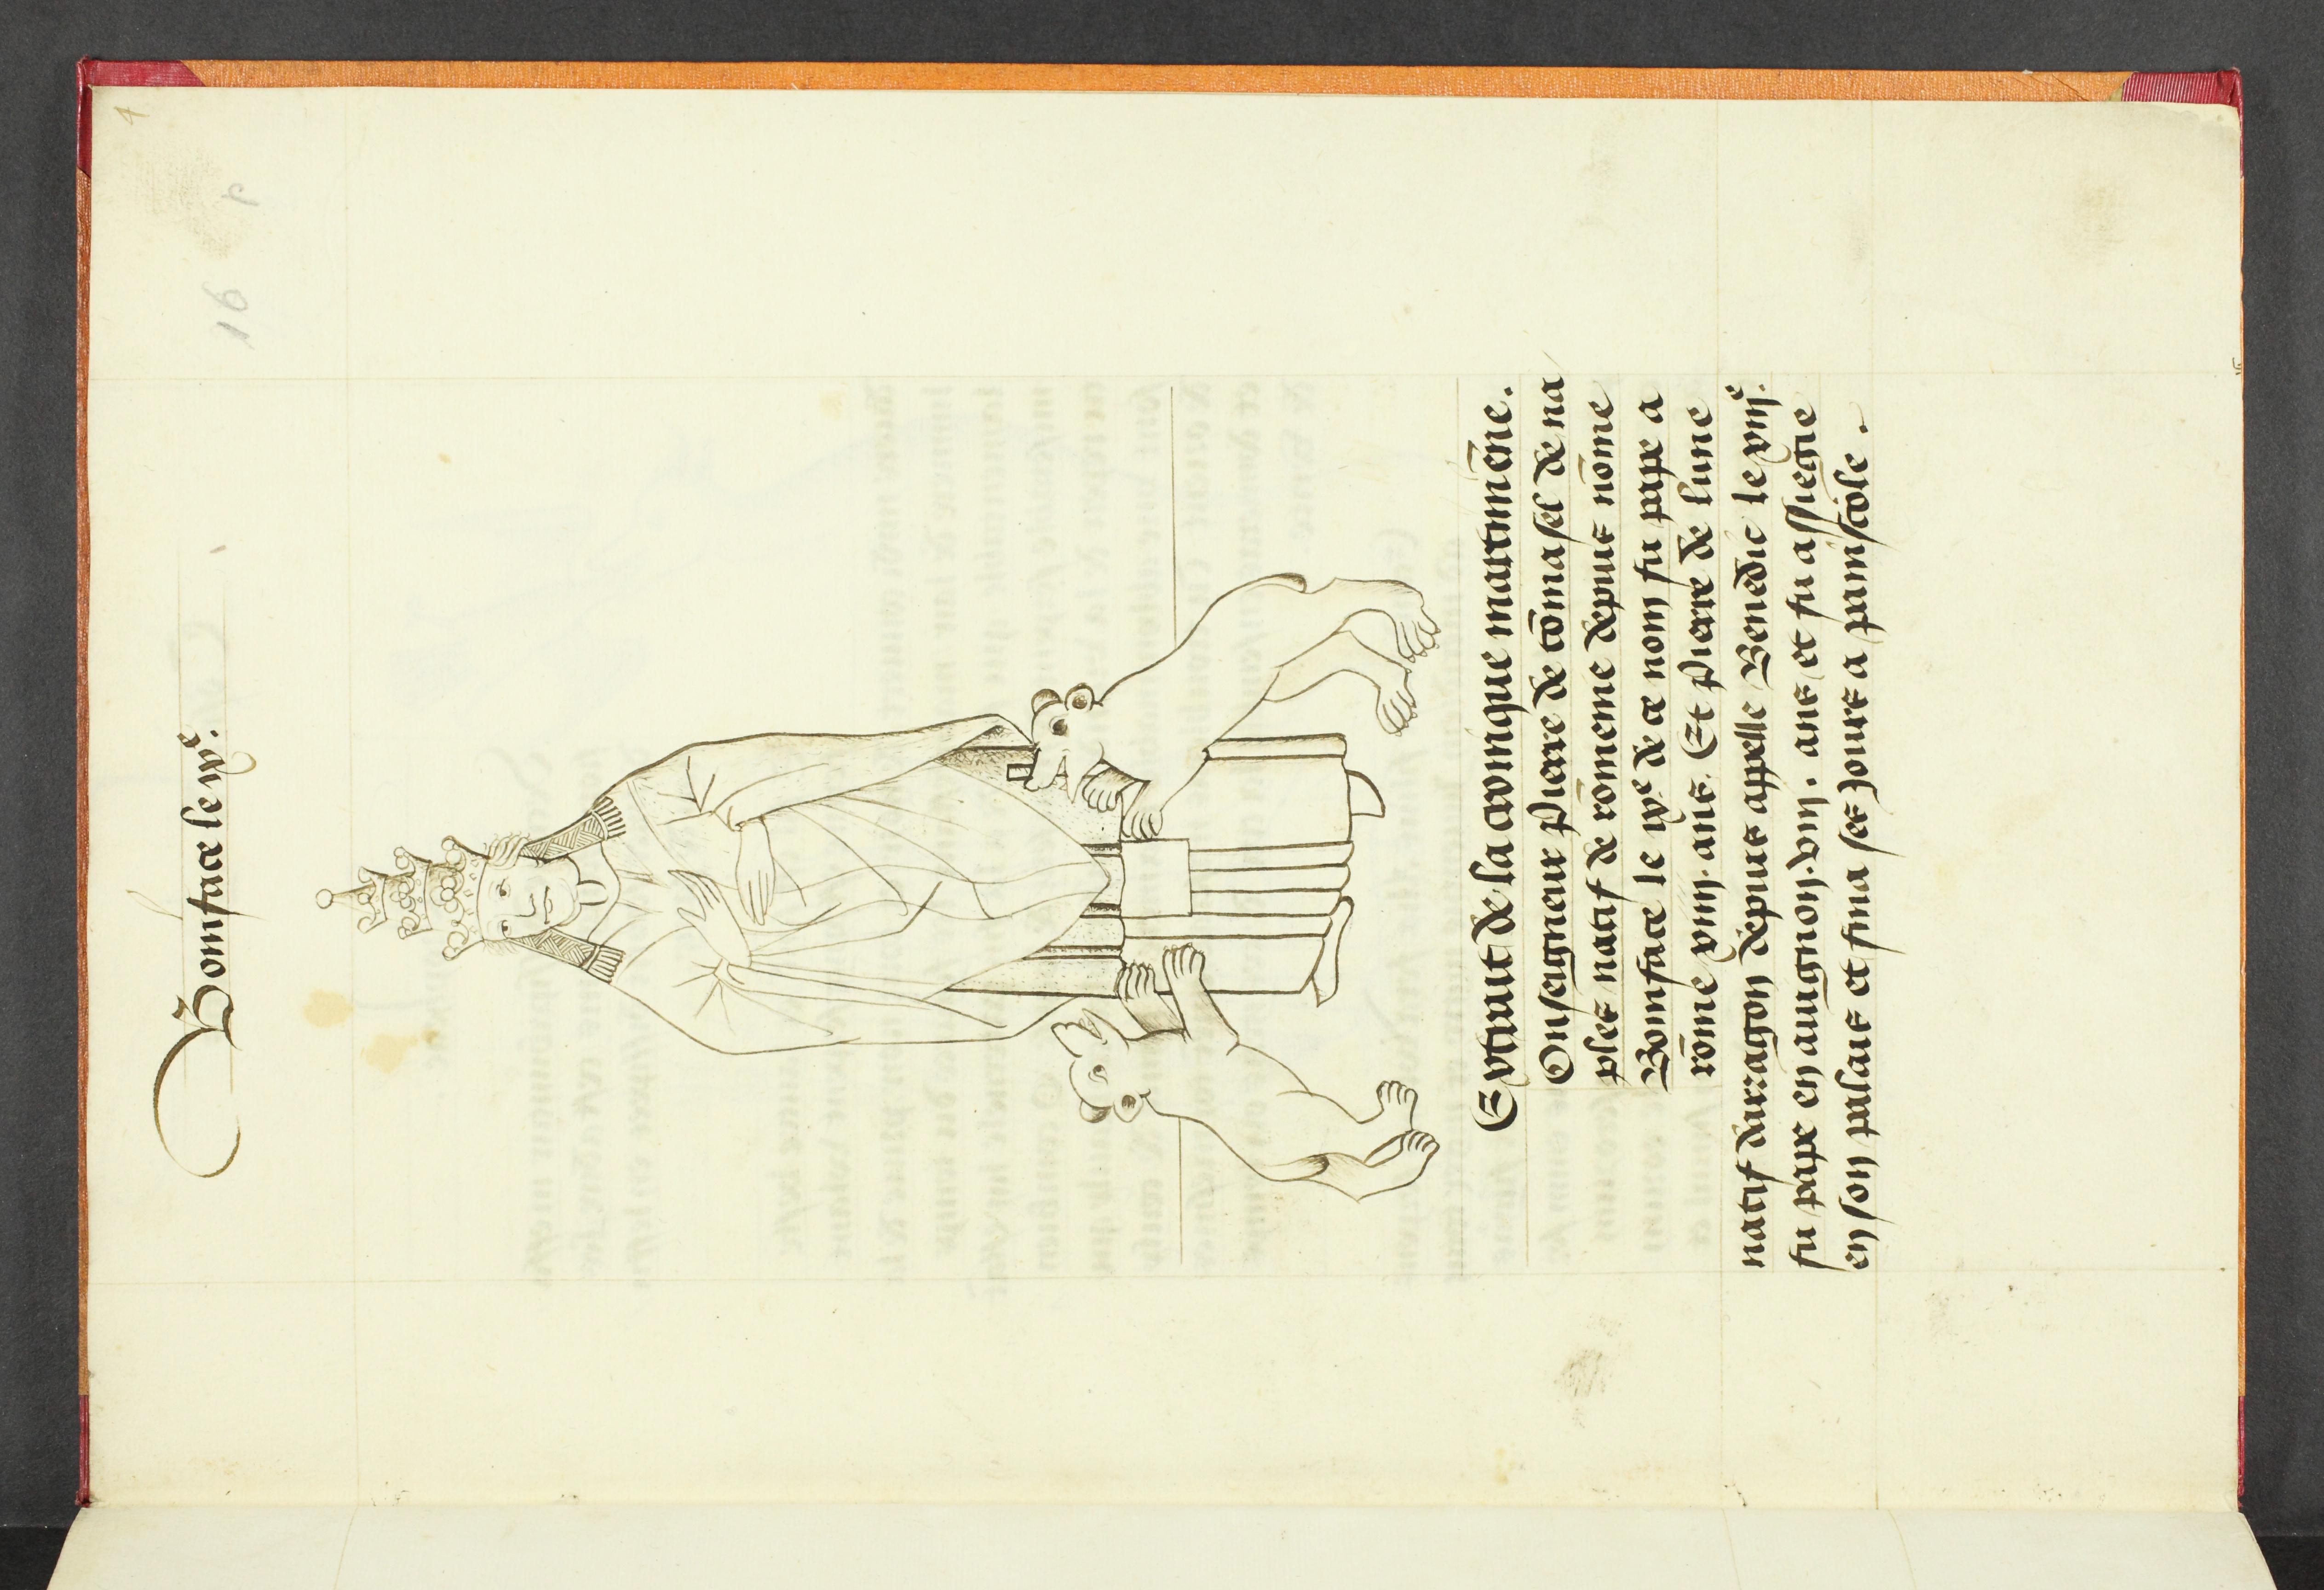 4
16
Boniface le ixe.
Extrait de la cronique martiniēne.
Onseigneur Pierre de tōmasel de na
ples natif de rōmenie depuis nōme
Boniface le ixe de ce nom fu pape a
rōme xiiii. ans. Et Pierre de lune
natif darragon depuis appelle Benedic le xiiie.
fu pape en auignon. viii. ans et fu assiegie
en son palais et fina ses Jours a paniscole.